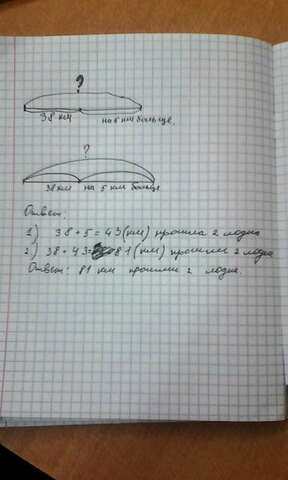 ?
38 км на 5 км больше.
?
38 км на 5 км больше
Ответ:
1) 38 + 5 = 43 (км) прошла 2 лодка
2) 38 + 43 = 81 (км) прошли 2 лодка
Ответ: 81 км прошли 2 лодка.